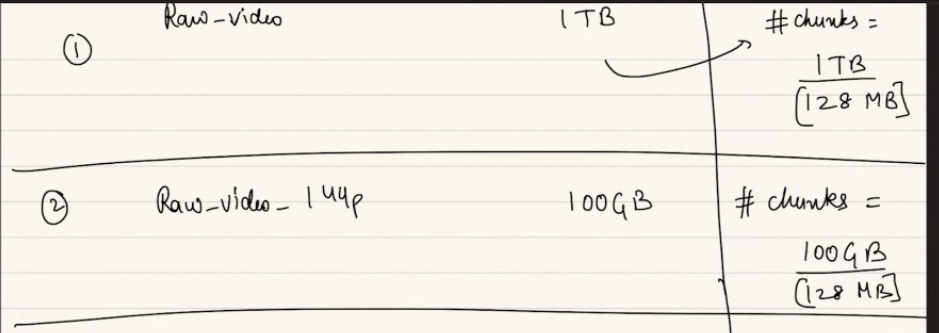 ① Raw-video 1TB # chunks =
1TB
[128 MB]
② Raw-video_144p 100GB # chunks =
100GB
[128 MB]